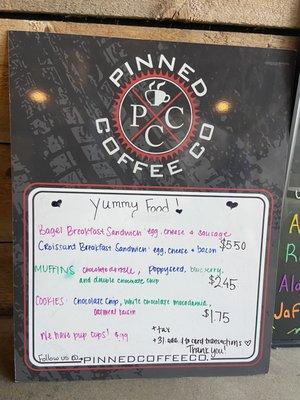 PINNED
P C
C
COFFEE CO
Yummy Food!
Bagel Breakfast Sandwich: egg, cheese & sausage
Croissant Breakfast Sandwich: egg, cheese & bacon $5.50
MUFFINS chocolate, poppyseed, blueberry,
and double chocolate chip $2.45
COOKIES: Chocolate Chip, White chocolate Macadamia,
oatmeal raisin $1.75
We have pup cups! $.99
*+tax
*3% added to card transactions
Thank you!
Follow us @ PINNEDCOFFEECO.